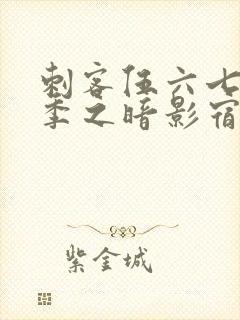 刺客伍六七
季之暗影宿
紫金城